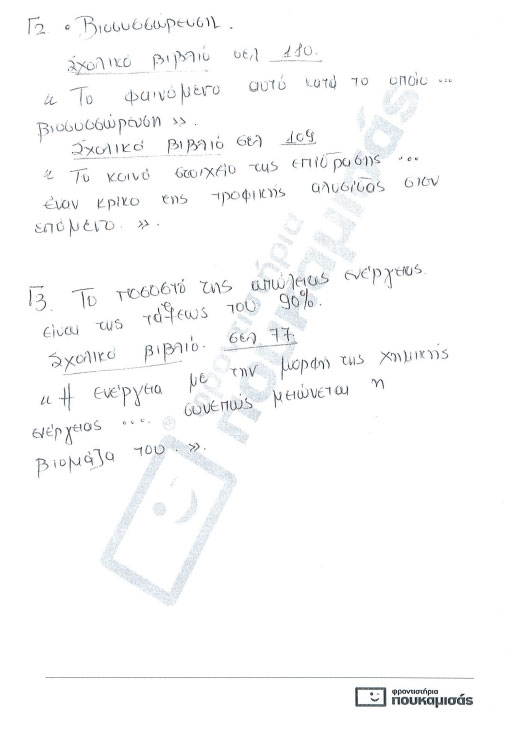 Γ2 • Βιοσυσσώρευση.
Σχολικό βιβλίο σελ 180.
« Το φαινόμενο αυτό κατά το οποίο ...
βιοσυσσώρευση ».
Σχολικό βιβλίο σελ 109
« Το κοινό στοιχείο της επίδρασης ...
έναν κρίκο της τροφικής αλυσίδας στον
επόμενο. ».
Γ3. Το ποσοστό της απώλειας ενέργειας
είναι της τάξεως του 90%.
Σχολικό βιβλίο. σελ 77.
« Η ενέργεια με την μορφή της χημικής
ενέργειας .... συνεπώς μειώνεται η
βιομάζα του. ».
φροντιστήρια
πουκαμισάς
φροντιστήρια
πουκαμισάς